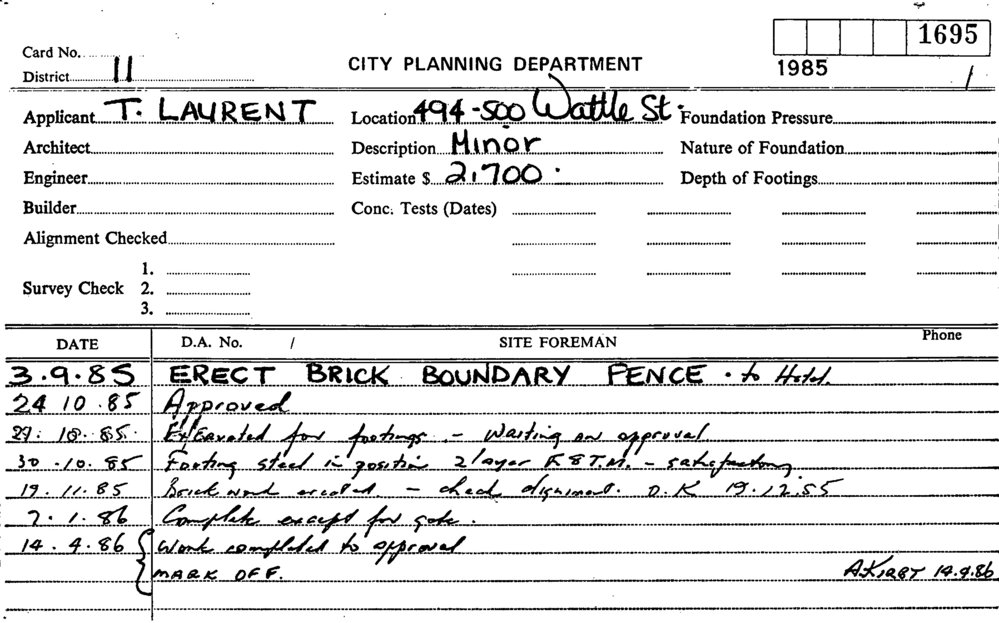 1695
Card No.
District 11
CITY PLANNING DEPARTMENT
1985 /
Applicant T. LAURENT Location 494-500 Wattle St. Foundation Pressure
Architect Description Minor Nature of Foundation
Engineer Estimate $ 2,700. Depth of Footings
Builder Conc. Tests (Dates)
Alignment Checked
1.
Survey Check 2.
3.
DATE D.A. No. / SITE FOREMAN Phone
3.9.85 ERECT BRICK BOUNDARY FENCE. to Hotel.
24 10.85 Approved
29. 10. 85. Excavated for footings. - Waiting on approval
30.10.85 Footing steel in position 2 layer F8T.M. - satisfactory
19.11.85 Brick work erected. - check alignment. O.K 19.12.85
7.1.86 Complete except for gate.
14.4.86 Work completed to approval
MARK OFF. A.KIRBY 14.4.86